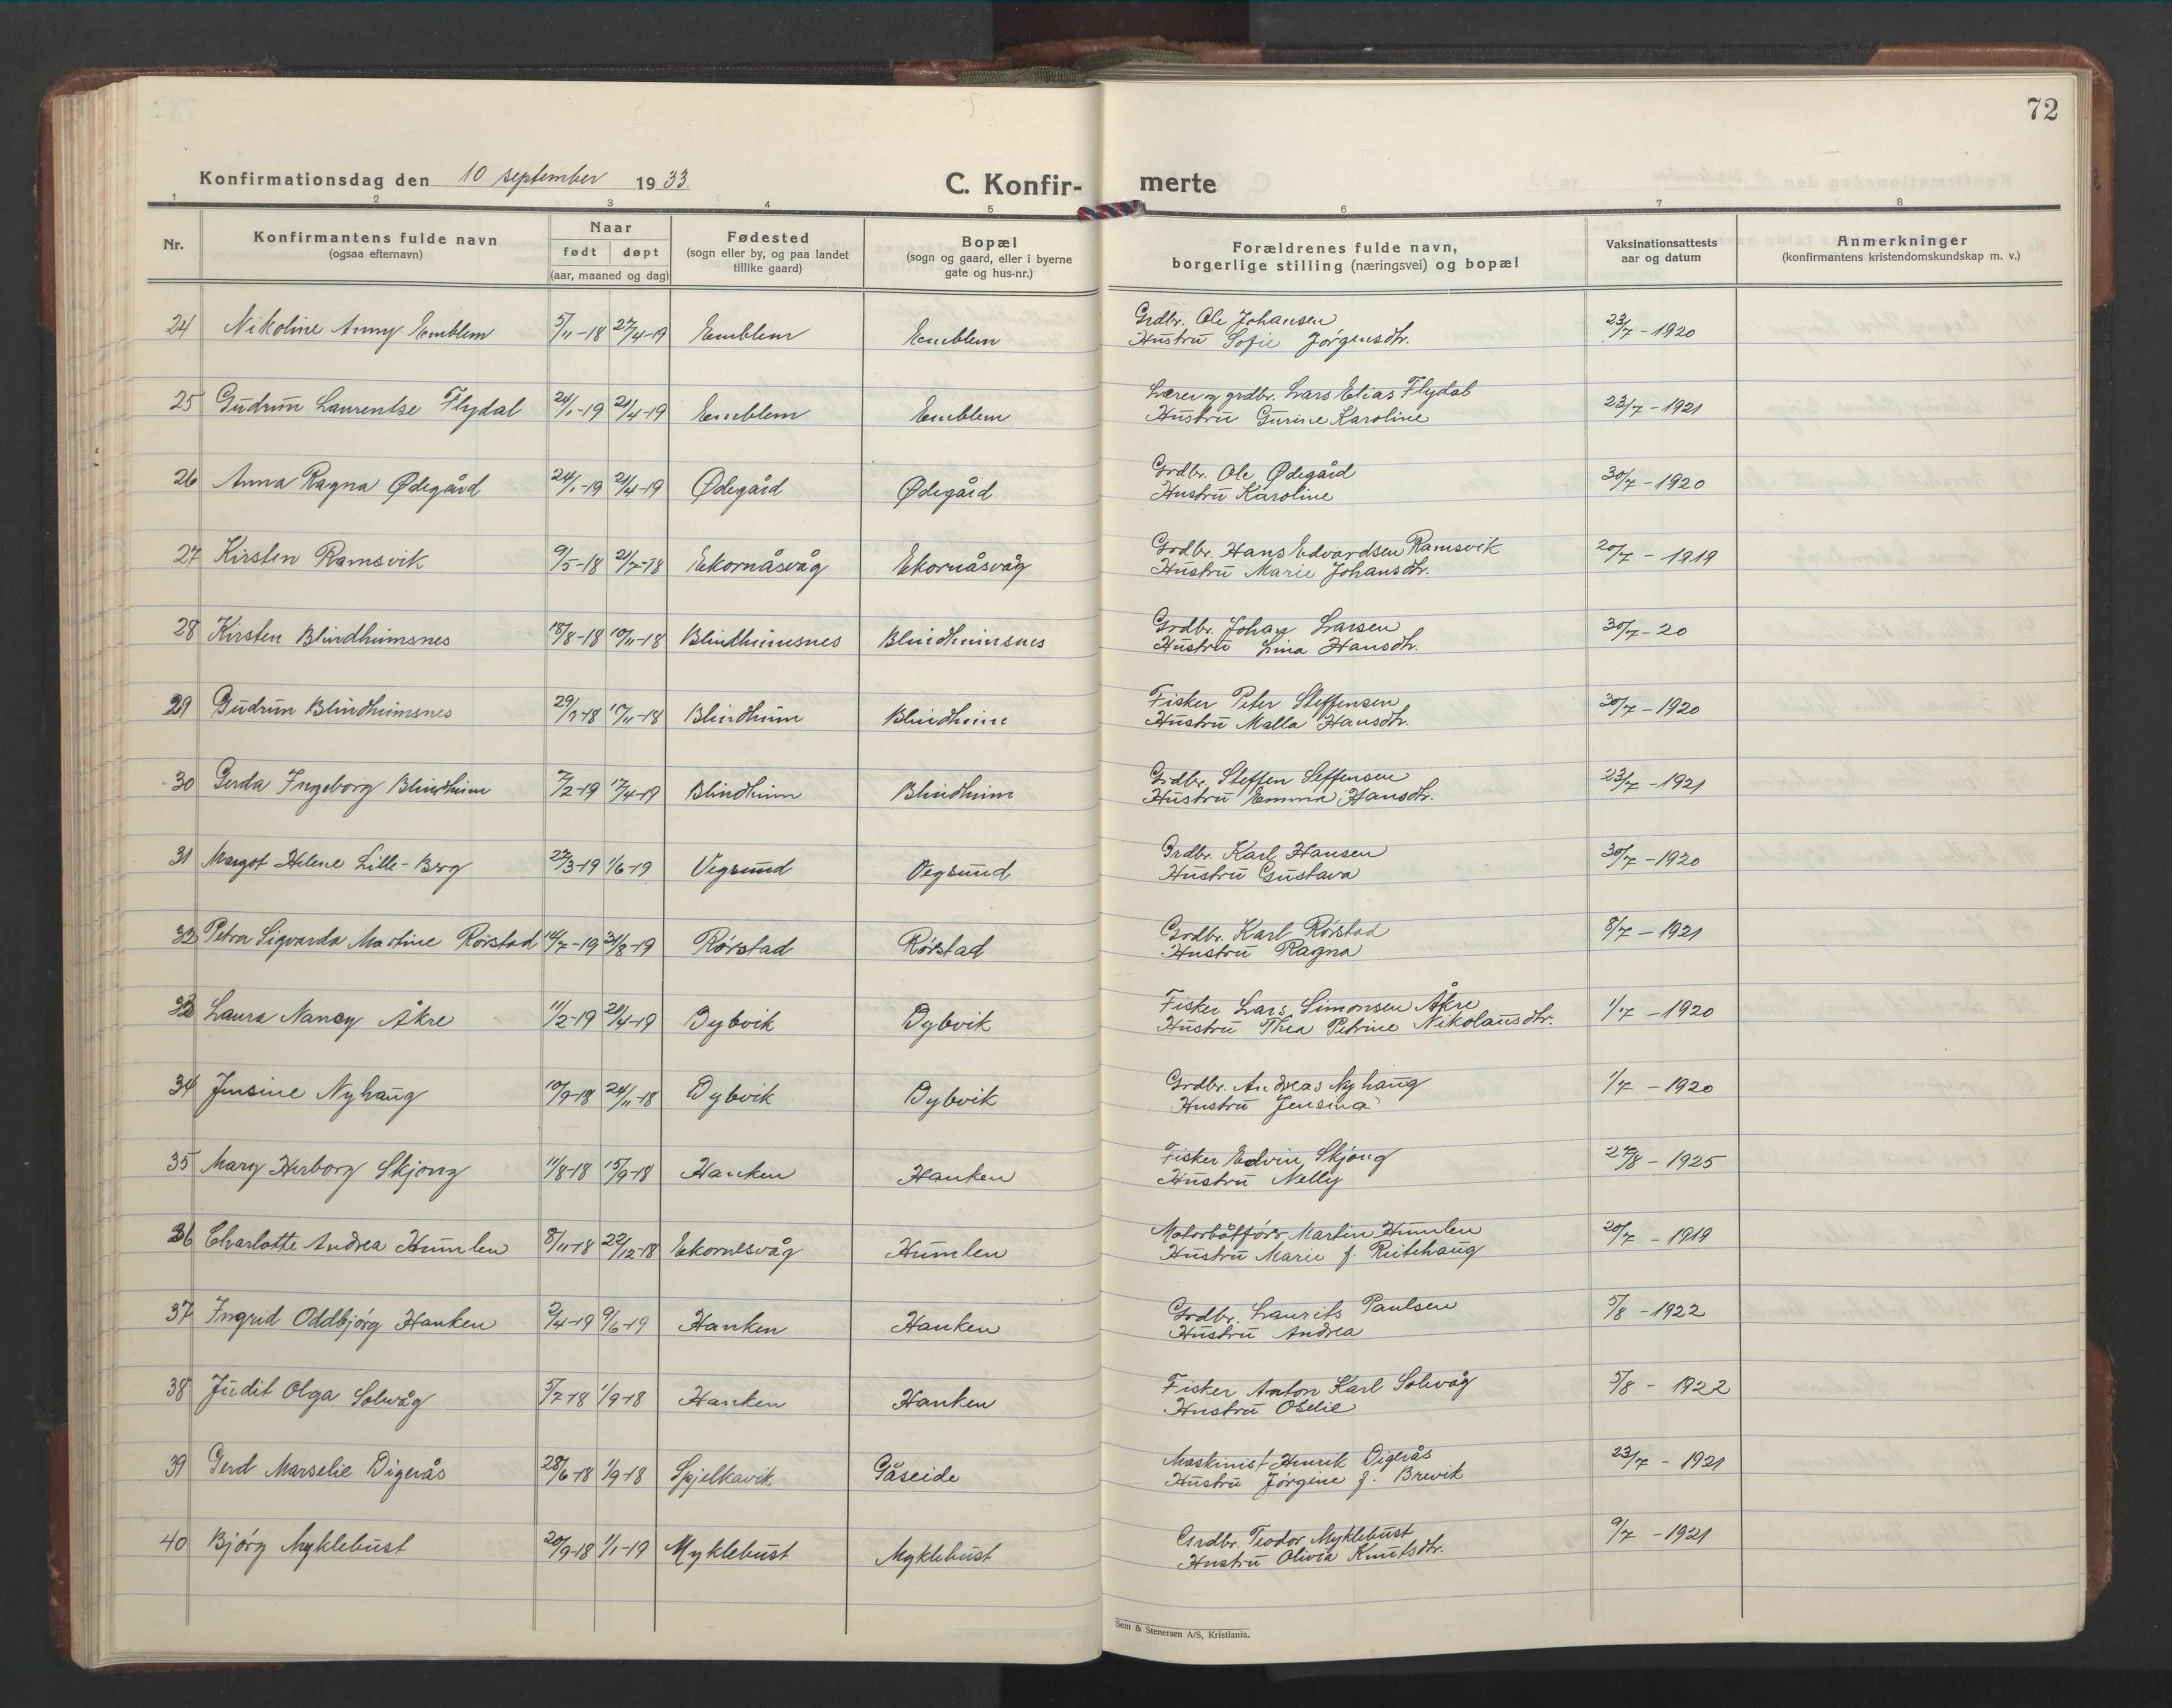 72
Konfirmationsdag den 10 september 1933.
C. Konfir- merte
1 2 3 4 5 6 7 8
Nr.
Konfirmantens fulde navn
(ogsaa efternavn)
Naar
født døpt
(aar, maaned og dag)
Fødested
(sogn eller by, og paa landet
tillike gaard)
Bopæl
(sogn og gaard, eller i byerne
gate og hus-nr.)
Forældrenes fulde navn,
borgerlige stilling (næringsvei) og bopæl
Vaksinationsattests
aar og datum
Anmerkninger
(konfirmantens kristendomskundskap m. v.)
24 Nikoline Anny Emblem 5/11-18 27/4-19 Emblem Emblem Grdbr. Ole Johansen 23/7-1920
Hustru Sofie Jørgensdtr.
25 Gudrun Laurentse Flydal 24/1-19 21/4-19 Emblem Emblem Lærer og grdbr. Lars Elias Flydal 23/7-1921
Hustru Gurine Karoline
26 Anna Ragna Ødegård 24/1-19 21/4-19 Ødegård Ødegård Grdbr. Ole Ødegård 30/7-1920
Hustru Karoline
27 Kirsten Ramsvik 9/5-18 21/7-18 Ekornåsvåg Ekornåsvåg Grdbr. Hans Edvardsen Ramsvik 20/7-1919
Hustru Marie Johansdtr.
28 Kirsten Blindheimsnes 18/8-18 10/11-18 Blindheimsnes Blindheimsnes Grdbr. Johan Larsen 30/7-20
Hustru Lina Hansdtr.
29 Gudrun Blindheimsnes 29/7-18 17/11-18 Blindheim Blindheim Fisker Peter Steffensen 30/7-1920
Hustru Malla Hansdtr.
30 Gerda Ingeborg Blindheim 7/2-19 17/4-19 Blindheim Blindheim Grdbr. Steffen Steffensen 23/7-1921
Hustru Emma Hansdtr.
31 Margot Helene Lille-Berg 27/3-19 1/6-19 Vegsund Vegsund Grdbr. Karl Hansen 30/7-1920
Hustru Gustava
32 Petra Sigvarda Martine Rørstad 14/7-19 31/8-19 Rørstad Rørstad Grdbr. Karl Rørstad 8/7-1921
Hustru Ragna
33 Laura Nancy Åkre 11/2-19 21/4-19 Dybvik Dybvik Fisker Lars Simonsen Åkre 1/7-1920
Hustru Thea Petrine Nikolausdtr.
34 Jensine Nyhaug 10/9-18 24/11-18 Dybvik Dybvik Grdbr. Andreas Nyhaug 1/7-1920
Hustru Jensina
35 Mary Herborg Skjong 11/8-18 15/9-18 Hanken Hanken Fisker Edvin Skjong 27/8-1925
Hustru Nelly
36 Charlotte Andrea Humlen 8/11-18 22/12-18 Ekornesvåg Humlen Motorbåtfører Martin Humlen 20/7-1919
Hustru Marie f. Reitehaug
37 Ingrid Oddbjørg Hanken 2/4-19 9/6-19 Hanken Hanken Grdbr. Laurits Paulsen 5/8-1922
Hustru Andrea
38 Judit Olga Solevåg 5/7-18 1/9-18 Hanken Hanken Fisker Anton Karl Solevåg 5/8-1922
Hustru Oselie
39 Gerd Marselie Digerås 28/6-18 1/9-18 Spjelkavik Gåseide Maskinist Henrik Digerås 23/7-1921
Hustru Jørgine f. Brevik
40 Bjørg Myklebust 20/9-18 1/1-19 Myklebust Myklebust Grdbr. Teodor Myklebust 9/7-1921
Hustru Olivia Knutsdtr.
Sem & Stenersen A/S, Kristiania.